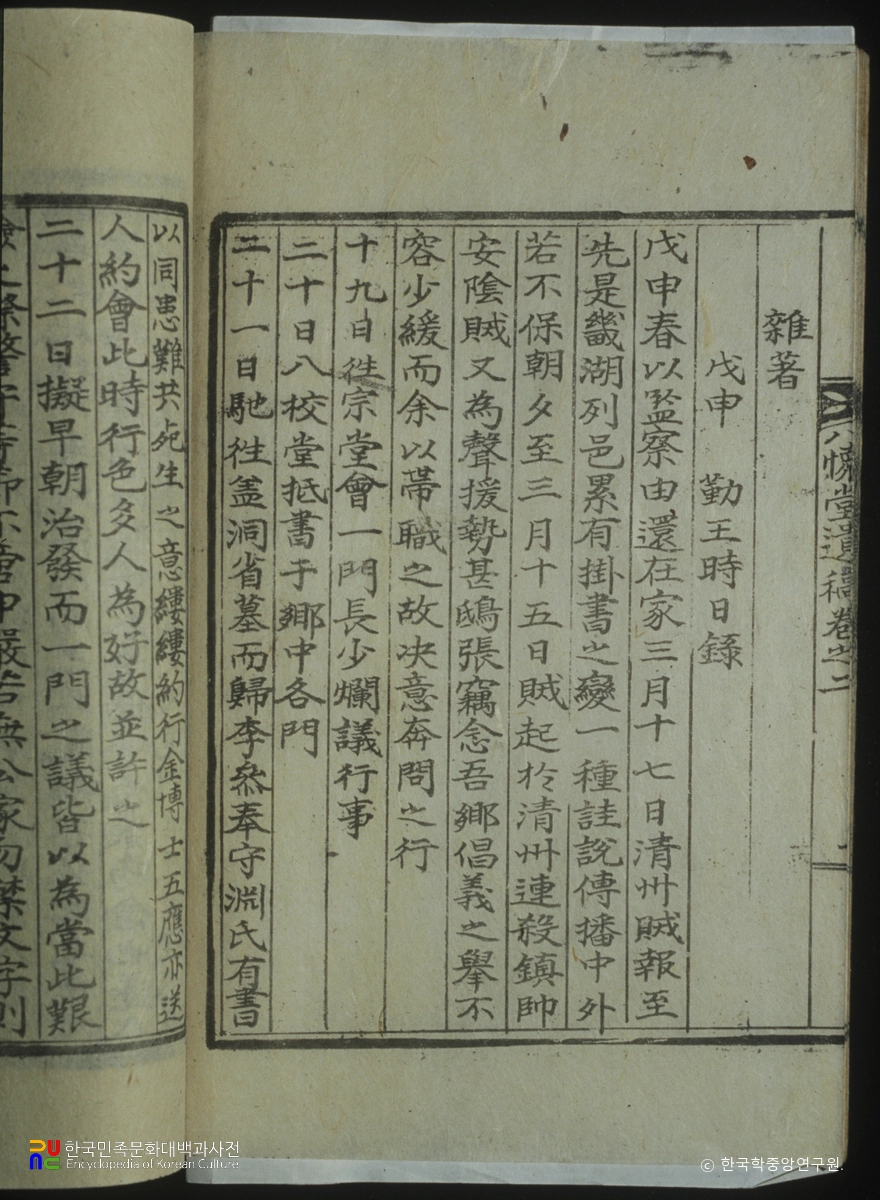 八懶堂遺稿卷之二
雜著
戊申勤王時日錄
戊申春以監察由還在家三月十七日淸州賊報至
先是畿湖列邑累有掛書之變一種詿說傳播中外
若不保朝夕至三月十五日賊起於淸州連殺鎮帥
安陰賊又為聲援勢甚鴟張竊念吾鄉倡義之擧不
容少緩而余以帶職之故决意奔問之行
十九日徃宗堂會一門長少爛議行事
二十日八校堂抵書于鄉中各門
二十一日馳徃釜洞省墓而歸李叅奉守淵氏有書
以同患難共死生之意縷縷約行金博士五應亦送
人約會此時行色多人為好故並許之
二十二日擬早朝治發而一門之議皆以為當此艱
若無公家勿禁文字則
한국민족문화대백과사전
Encyclopedia of Korean Culture
© 한국학중앙연구원